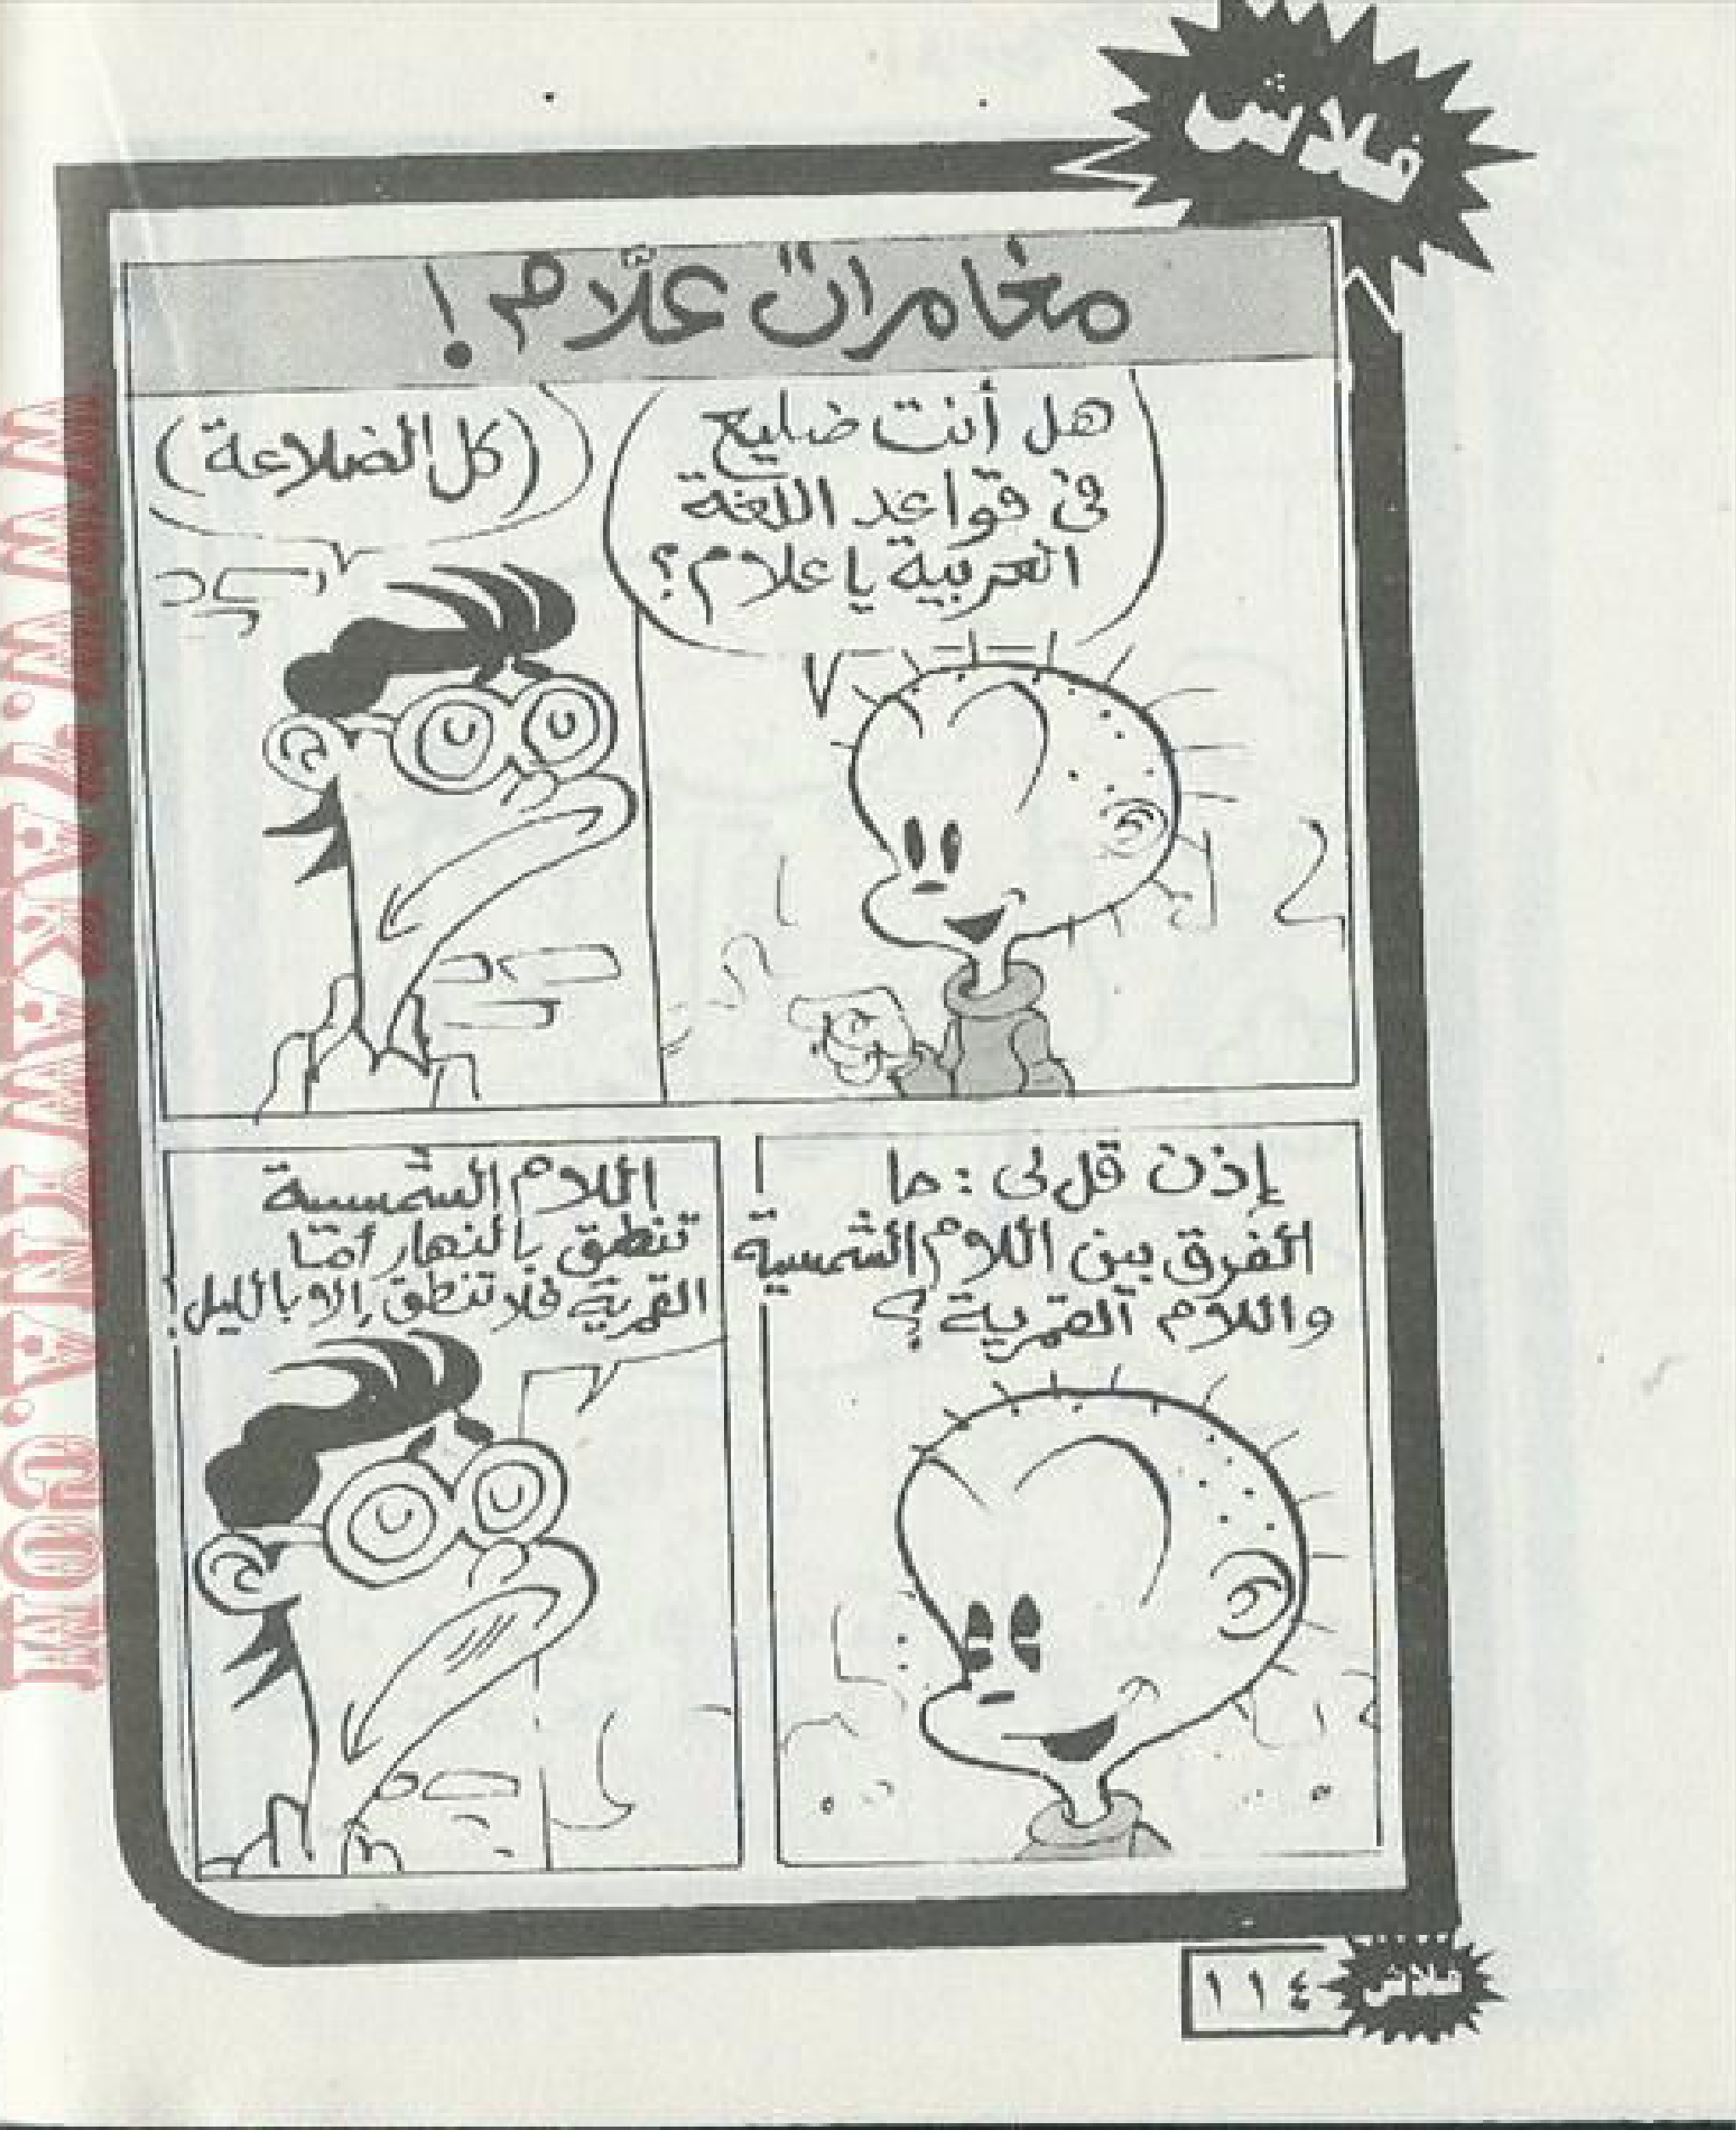 فلاش
مغامرات علّام!
هل أنت ضليع
فى قواعد اللغة
العربية يا علام؟
(كل الضلاعة)
إذن قل لى: ما
الفرق بين اللام الشمسية
واللام القمرية؟
اللام الشمسية
تنطق بالنهار أمّا
القمرية فلا تنطق إلا بالليل!
١١٤
فلاش
WWW.RAKAWINNA.COM